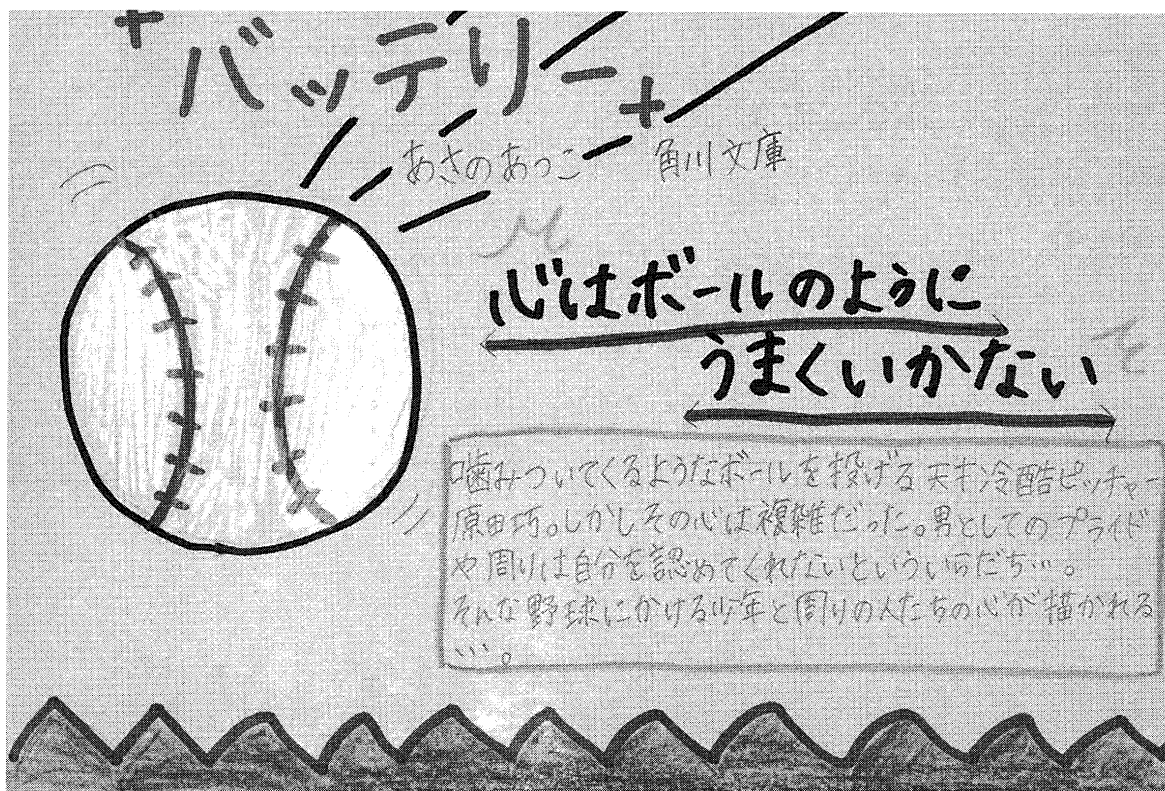 バッテリー
あさのあつこ 角川文庫
心はボールのように
うまくいかない
噛みついてくるようなボールを投げる天才冷酷ピッチャー
原田巧。しかしその心は複雑だった。男としてのプライド
や周りは自分を認めてくれないといういらだち…。
そんな野球にかける少年と周りの人たちの心が描かれる
…。